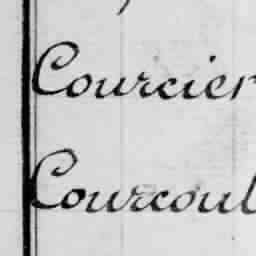 Courcier
Courcoul